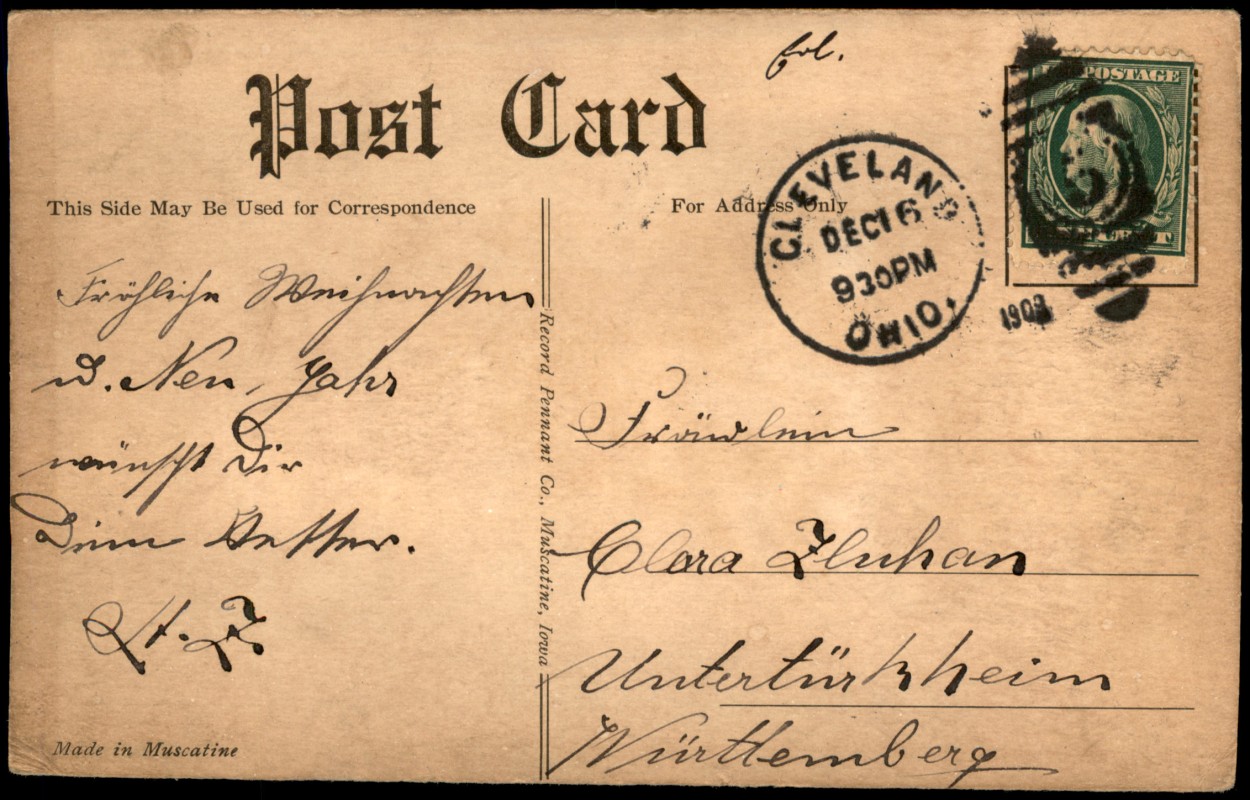 Post Card
This Side May Be Used for Correspondence
For Address Only
U.S. POSTAGE
CLEVELAND
DEC 16
930PM
OHIO.
1909
Fröhliche Weihnachten
u. Neu Jahr
wünscht Dir
Dein Vetter.
Fräulein
Clara Zluhan
Untertürkheim
Württemberg
Record Pennant Co., Muscatine, Iowa
Made in Muscatine